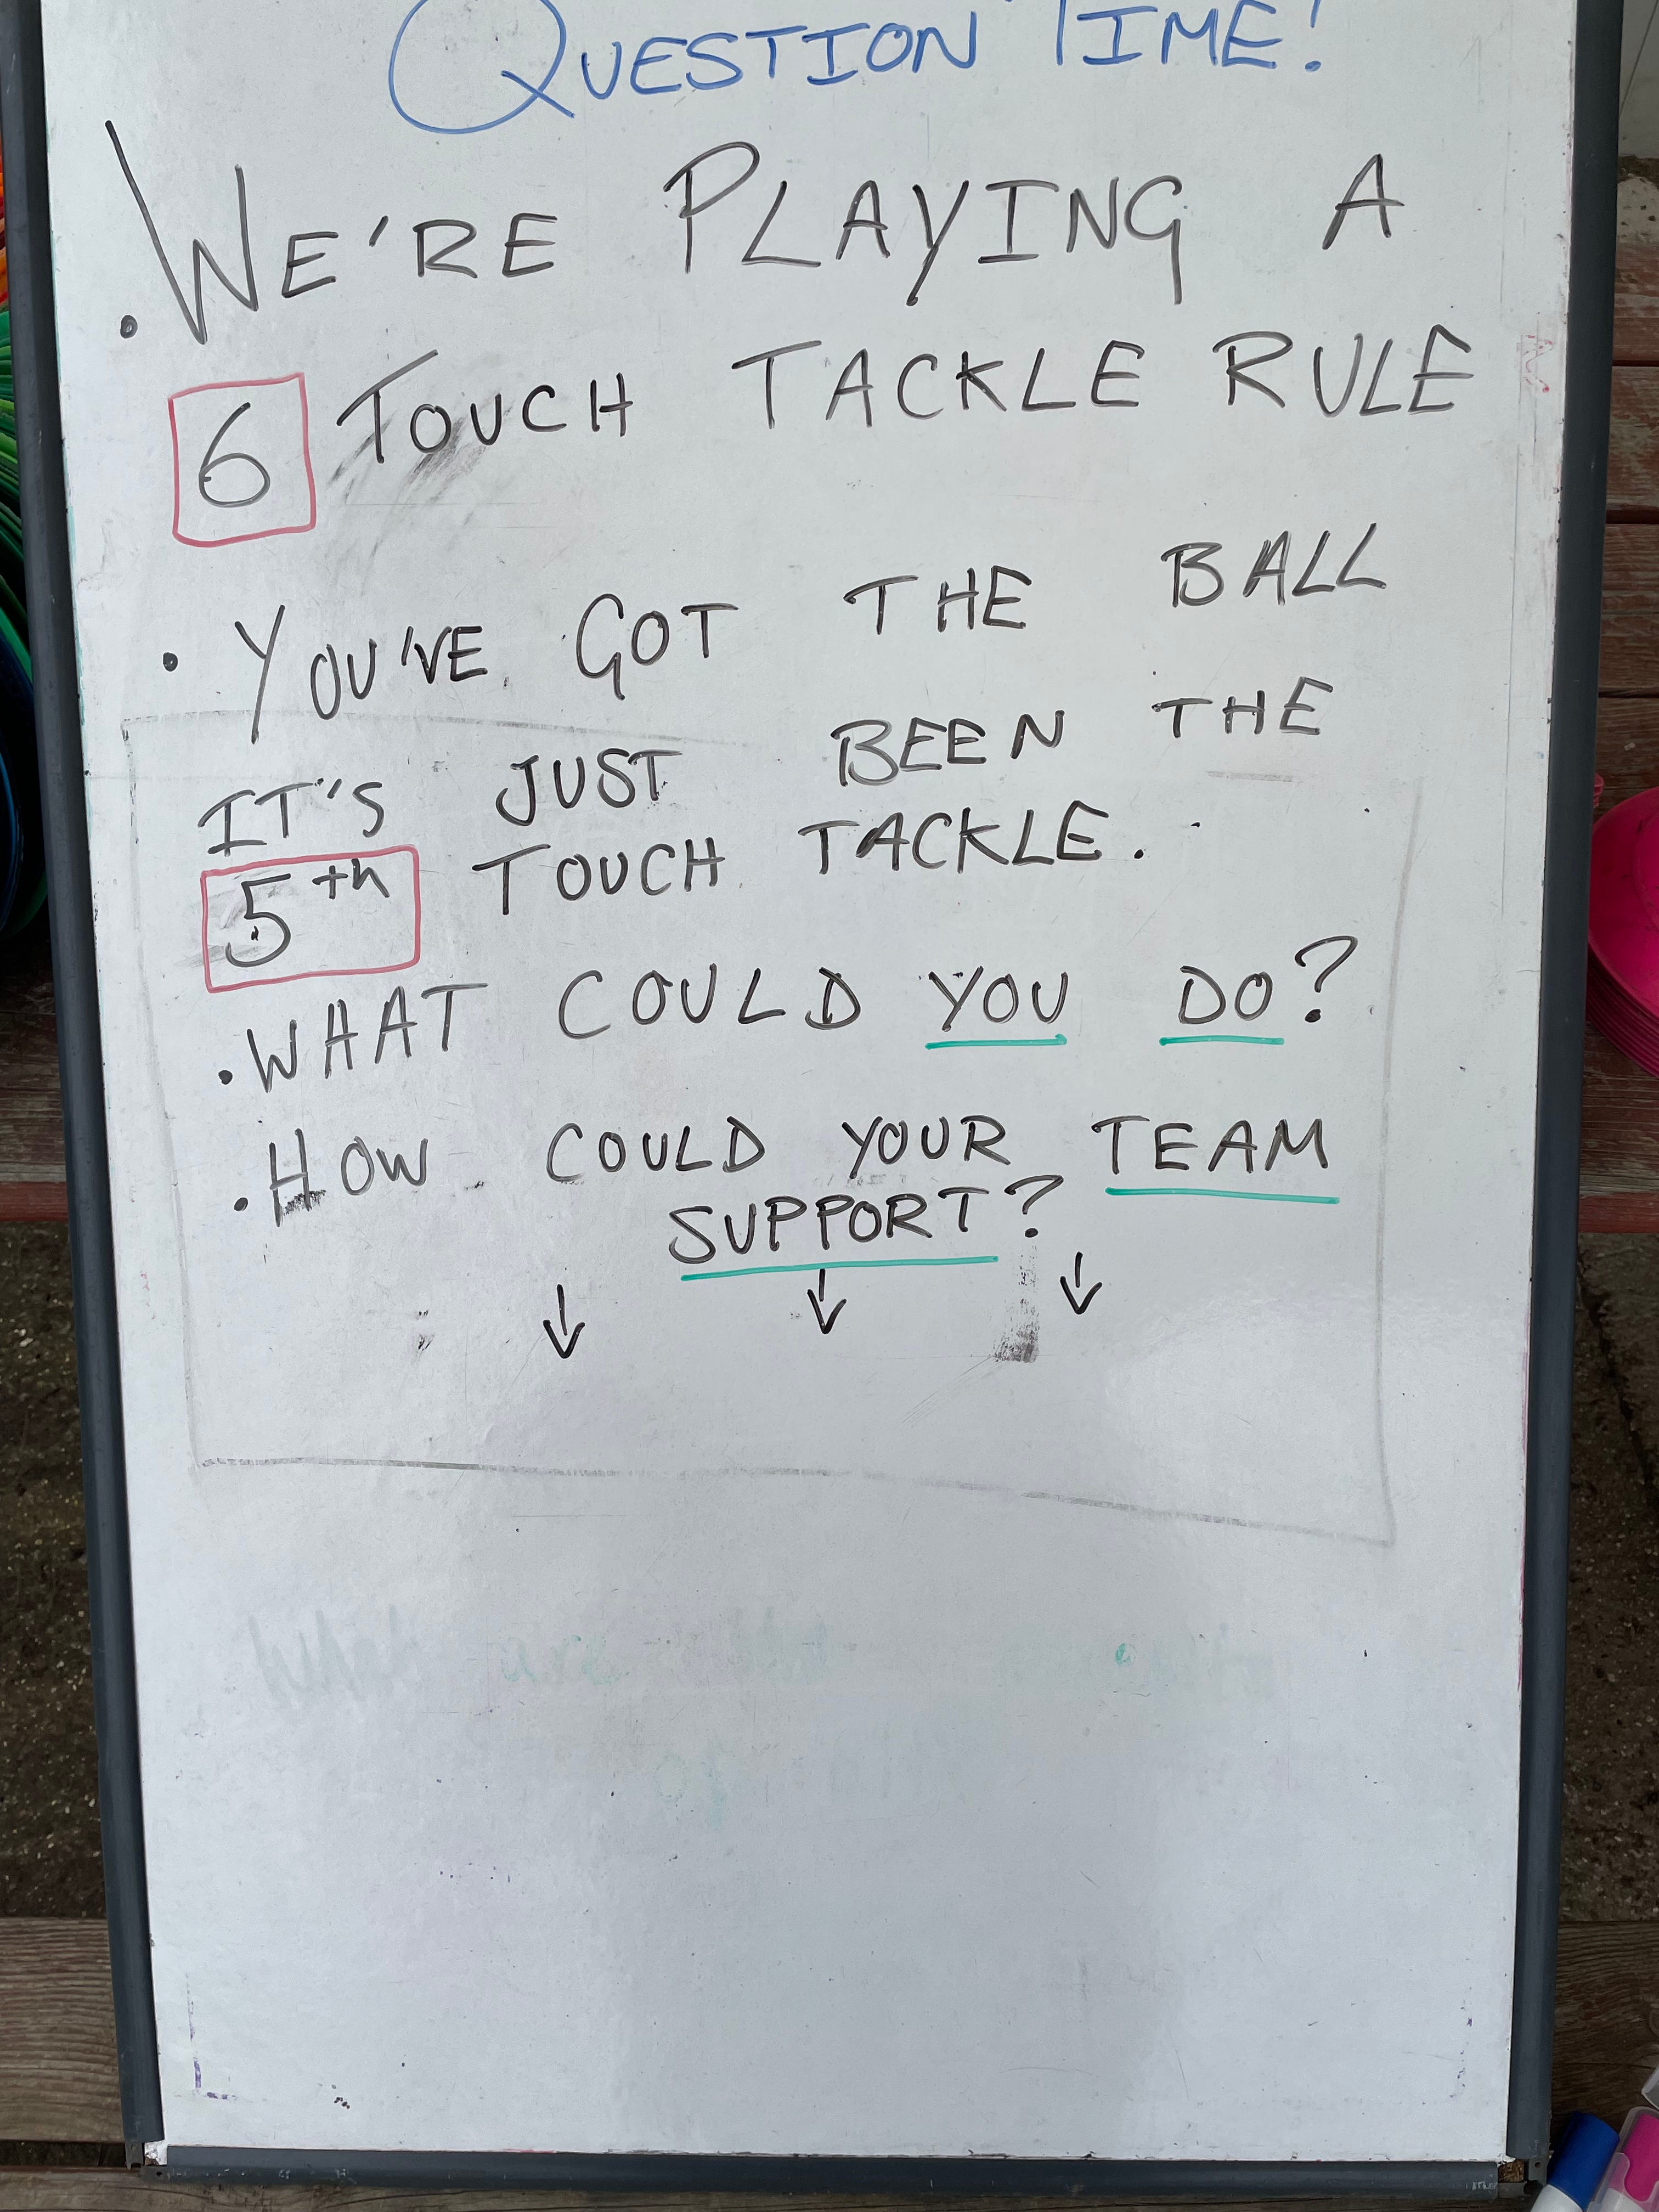 QUESTION TIME!
• WE'RE PLAYING A
6 TOUCH TACKLE RULE
• YOU'VE GOT THE BALL
IT'S JUST BEEN THE
5th TOUCH TACKLE.
• WHAT COULD YOU DO?
• HOW COULD YOUR TEAM
SUPPORT?
What are the